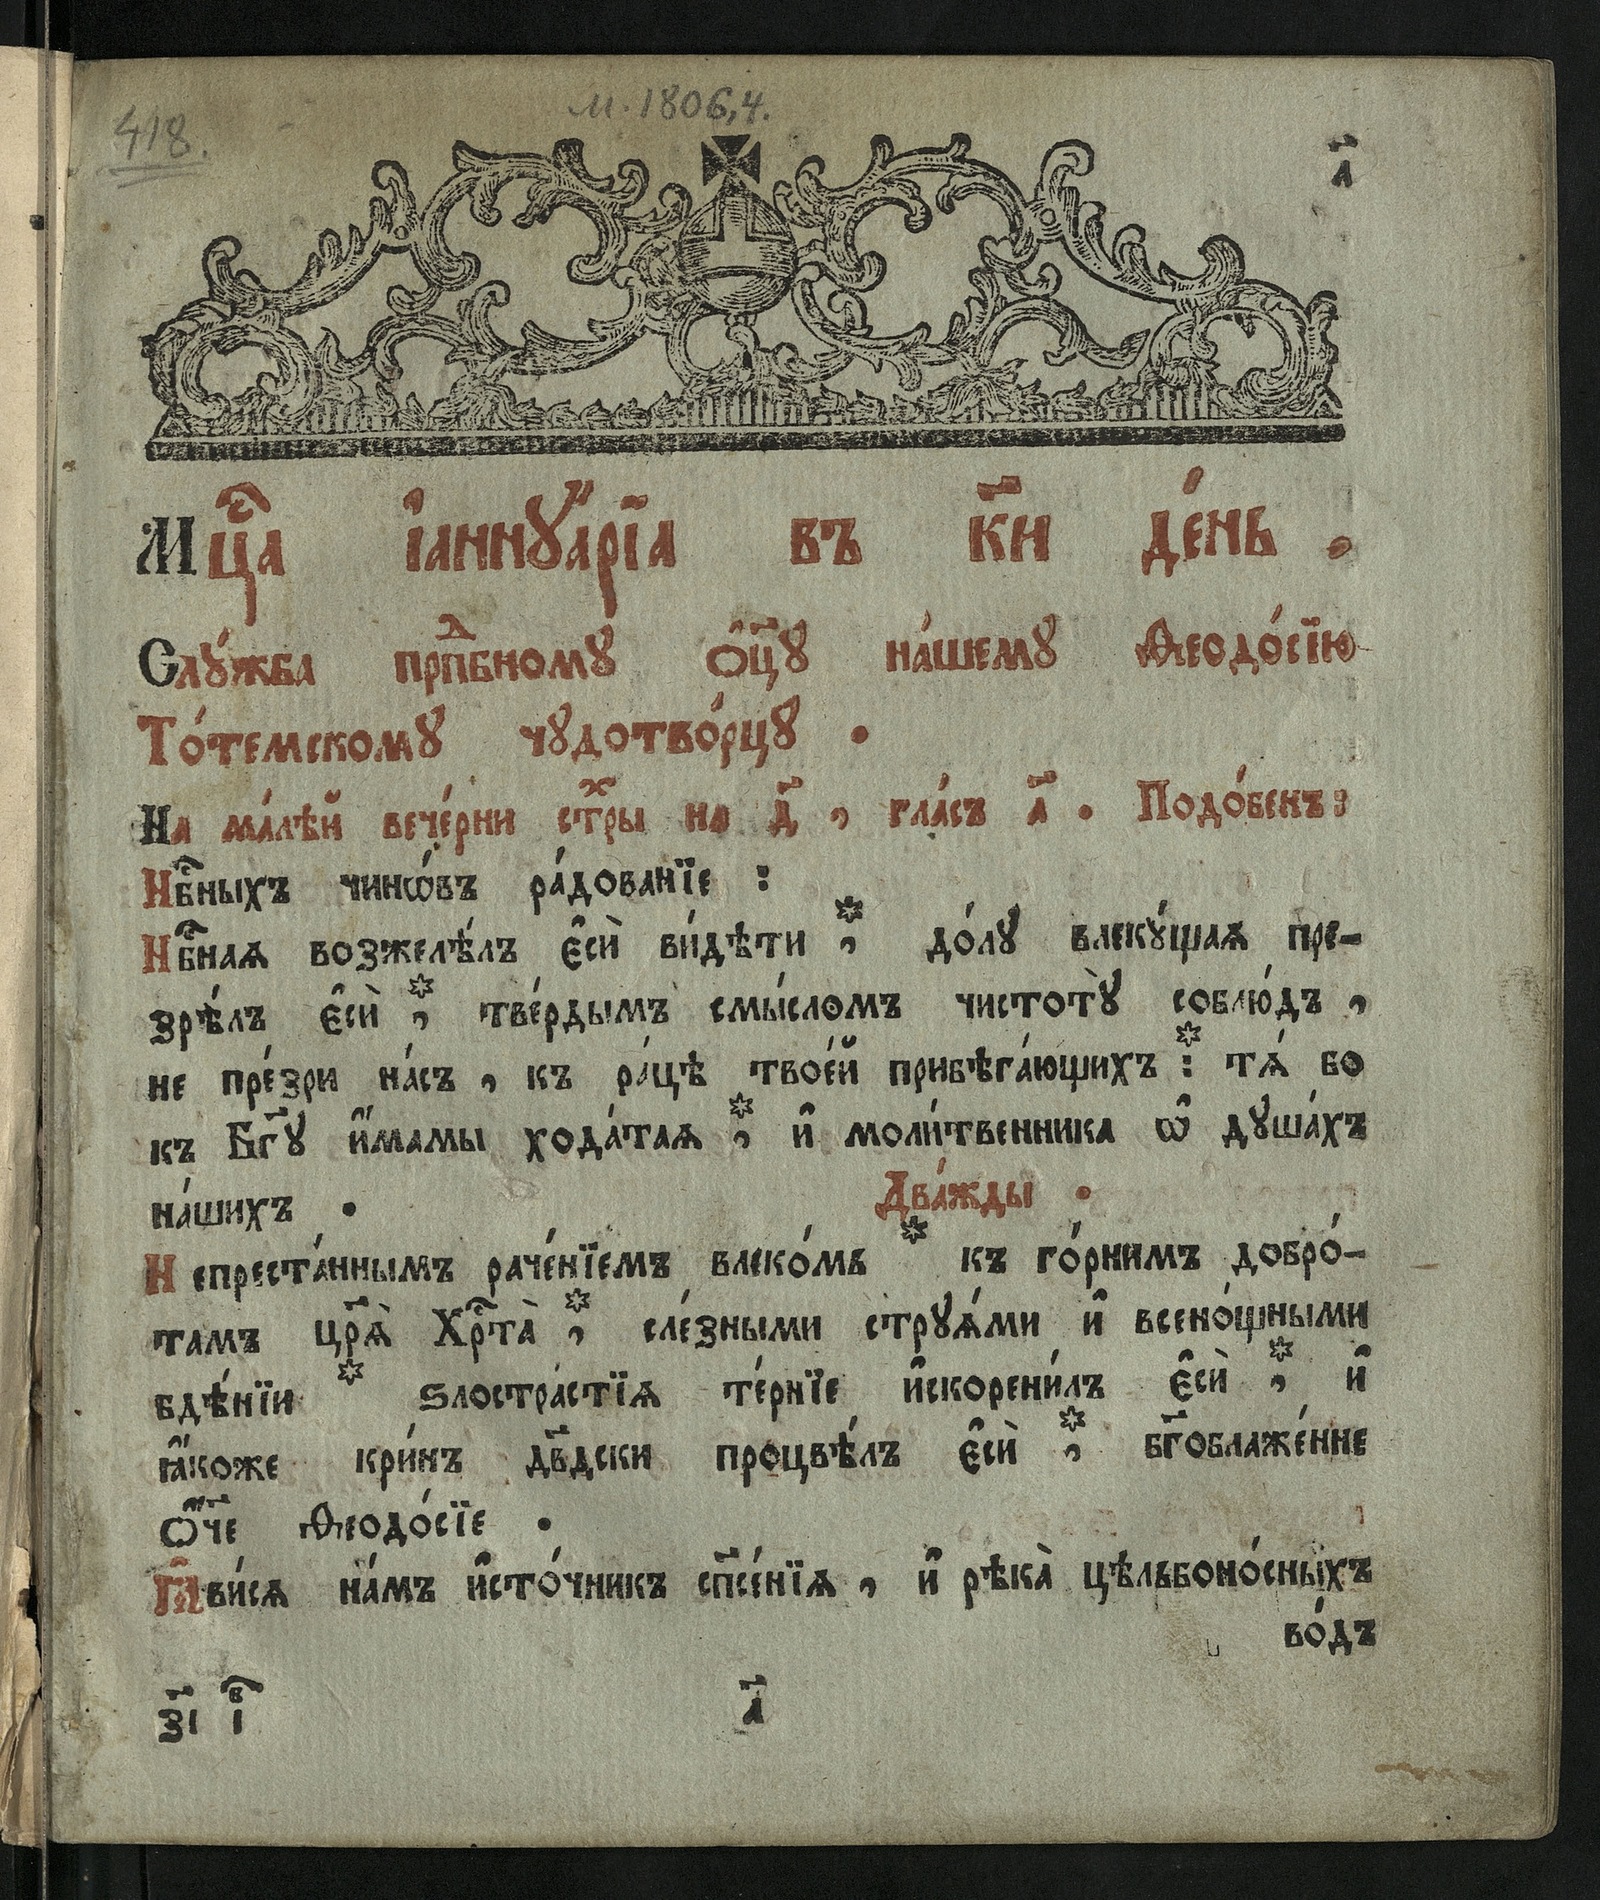 418.
М. 1806,4.
а҃
Мцⷭ҇а і҆аннꙋа́рїа въ к҃и де́нь .
Слꙋ́жба прпⷣбномꙋ ѻ҆ц҃ꙋ на́шемꙋ Ѳеодо́сїю
То́темскомꙋ чꙋдотво́рцꙋ .
На ма́лѣй вече́рни стⷯры на д҃ , гла́съ а҃ . Подо́бенъ :
Нбⷭ҇ныхъ чинѡ́въ ра́дованїе :
Нбⷭ҇наѧ возжелѣ́лъ є҆сѝ ви́дѣти * , до́лꙋ влекꙋ́щаѧ пре-
зрѣ́лъ є҆сѝ * , тве́рдымъ смы́сломъ чистотꙋ̀ соблю́дъ ,
не пре́зри на́съ , къ ра́цѣ твое́й прибѣга́ющихъ * : тѧ́ бо
къ Бг҃ꙋ и҆́мамы хода́таѧ * , и҆ моли́твенника ѡ҆ дꙋша́хъ
на́шихъ . Два́жды .
Непреста́ннымъ раче́нїемъ влеко́мь * къ го́рнимъ добро́-
тамъ цр҃ѧ̀ Хрⷭ҇та̀ * , сле́зными стрꙋѧ́ми и҆ всено́щными
бдѣ́нїи * ѕлостра́стїѧ те́рнїе и҆скорени́лъ є҆сѝ * , и҆
ꙗ҆́коже кри́нъ дв҃дски процвѣ́лъ є҆сѝ * , бг҃облаже́нне
ѻ҆́ч҃е Ѳеодо́сїе .
Ꙗ҆ви́сѧ на́мъ и҆сто́чникъ сп҃се́нїѧ , и҆ рѣка̀ цѣльбоно́сныхъ
во́дъ
з҃і і҆ⷡ҇ а҃